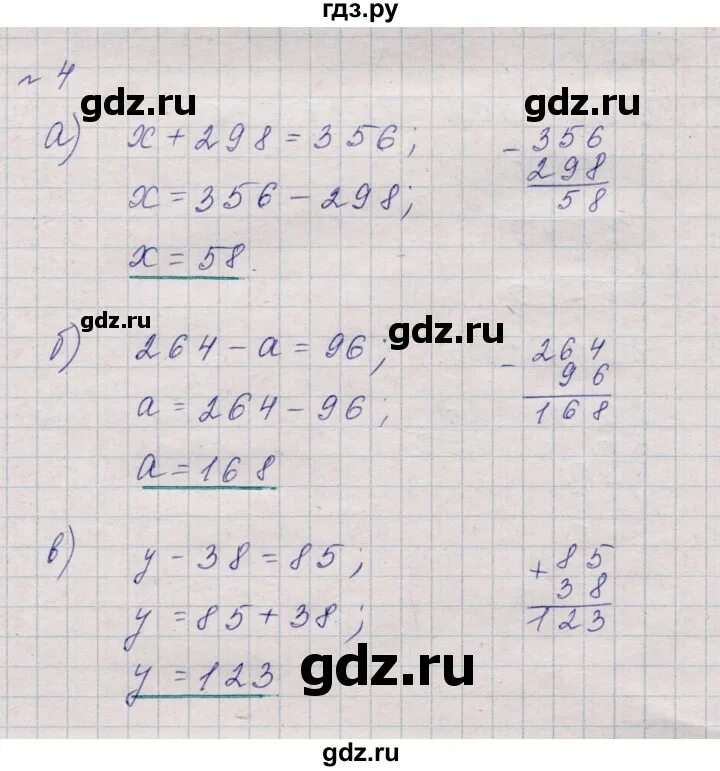 гдз.ру
№ 4
gdz.ru
а) x + 298 = 356;
- 356
298
58
x = 356 - 298;
x = 58
gdz.ru
gdz.ru
gdz.ru
б) 264 - a = 96;
- 264
96
168
a = 264 - 96;
a = 168
в) y - 38 = 85;
+ 85
38
123
y = 85 + 38;
y = 123
gdz.ru
gdz.ru